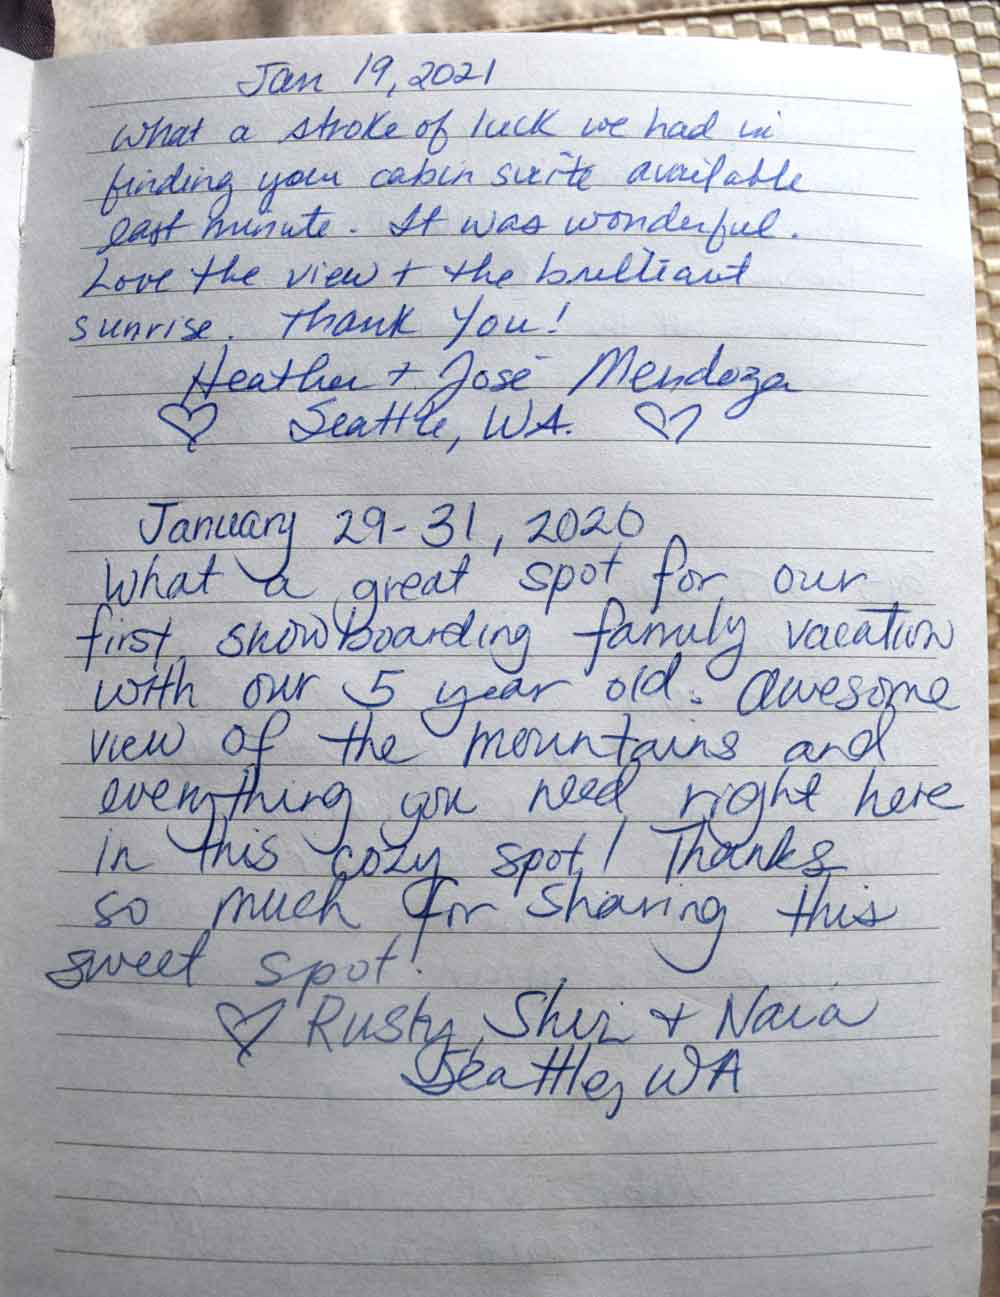 Jan 19, 2021
What a stroke of luck we had in
finding your cabin suite available
last minute. It was wonderful.
Love the view + the brilliant
sunrise. Thank you!
Heather + José Mendoza
Seattle, WA.
January 29-31, 2020
What a great spot for our
first snowboarding family vacation
with our 5 year old. Awesome
view of the mountains and
everything you need right here
in this cozy spot! Thanks
so much for sharing this
sweet spot!
Rusty, Shiri + Naia
Seattle, WA